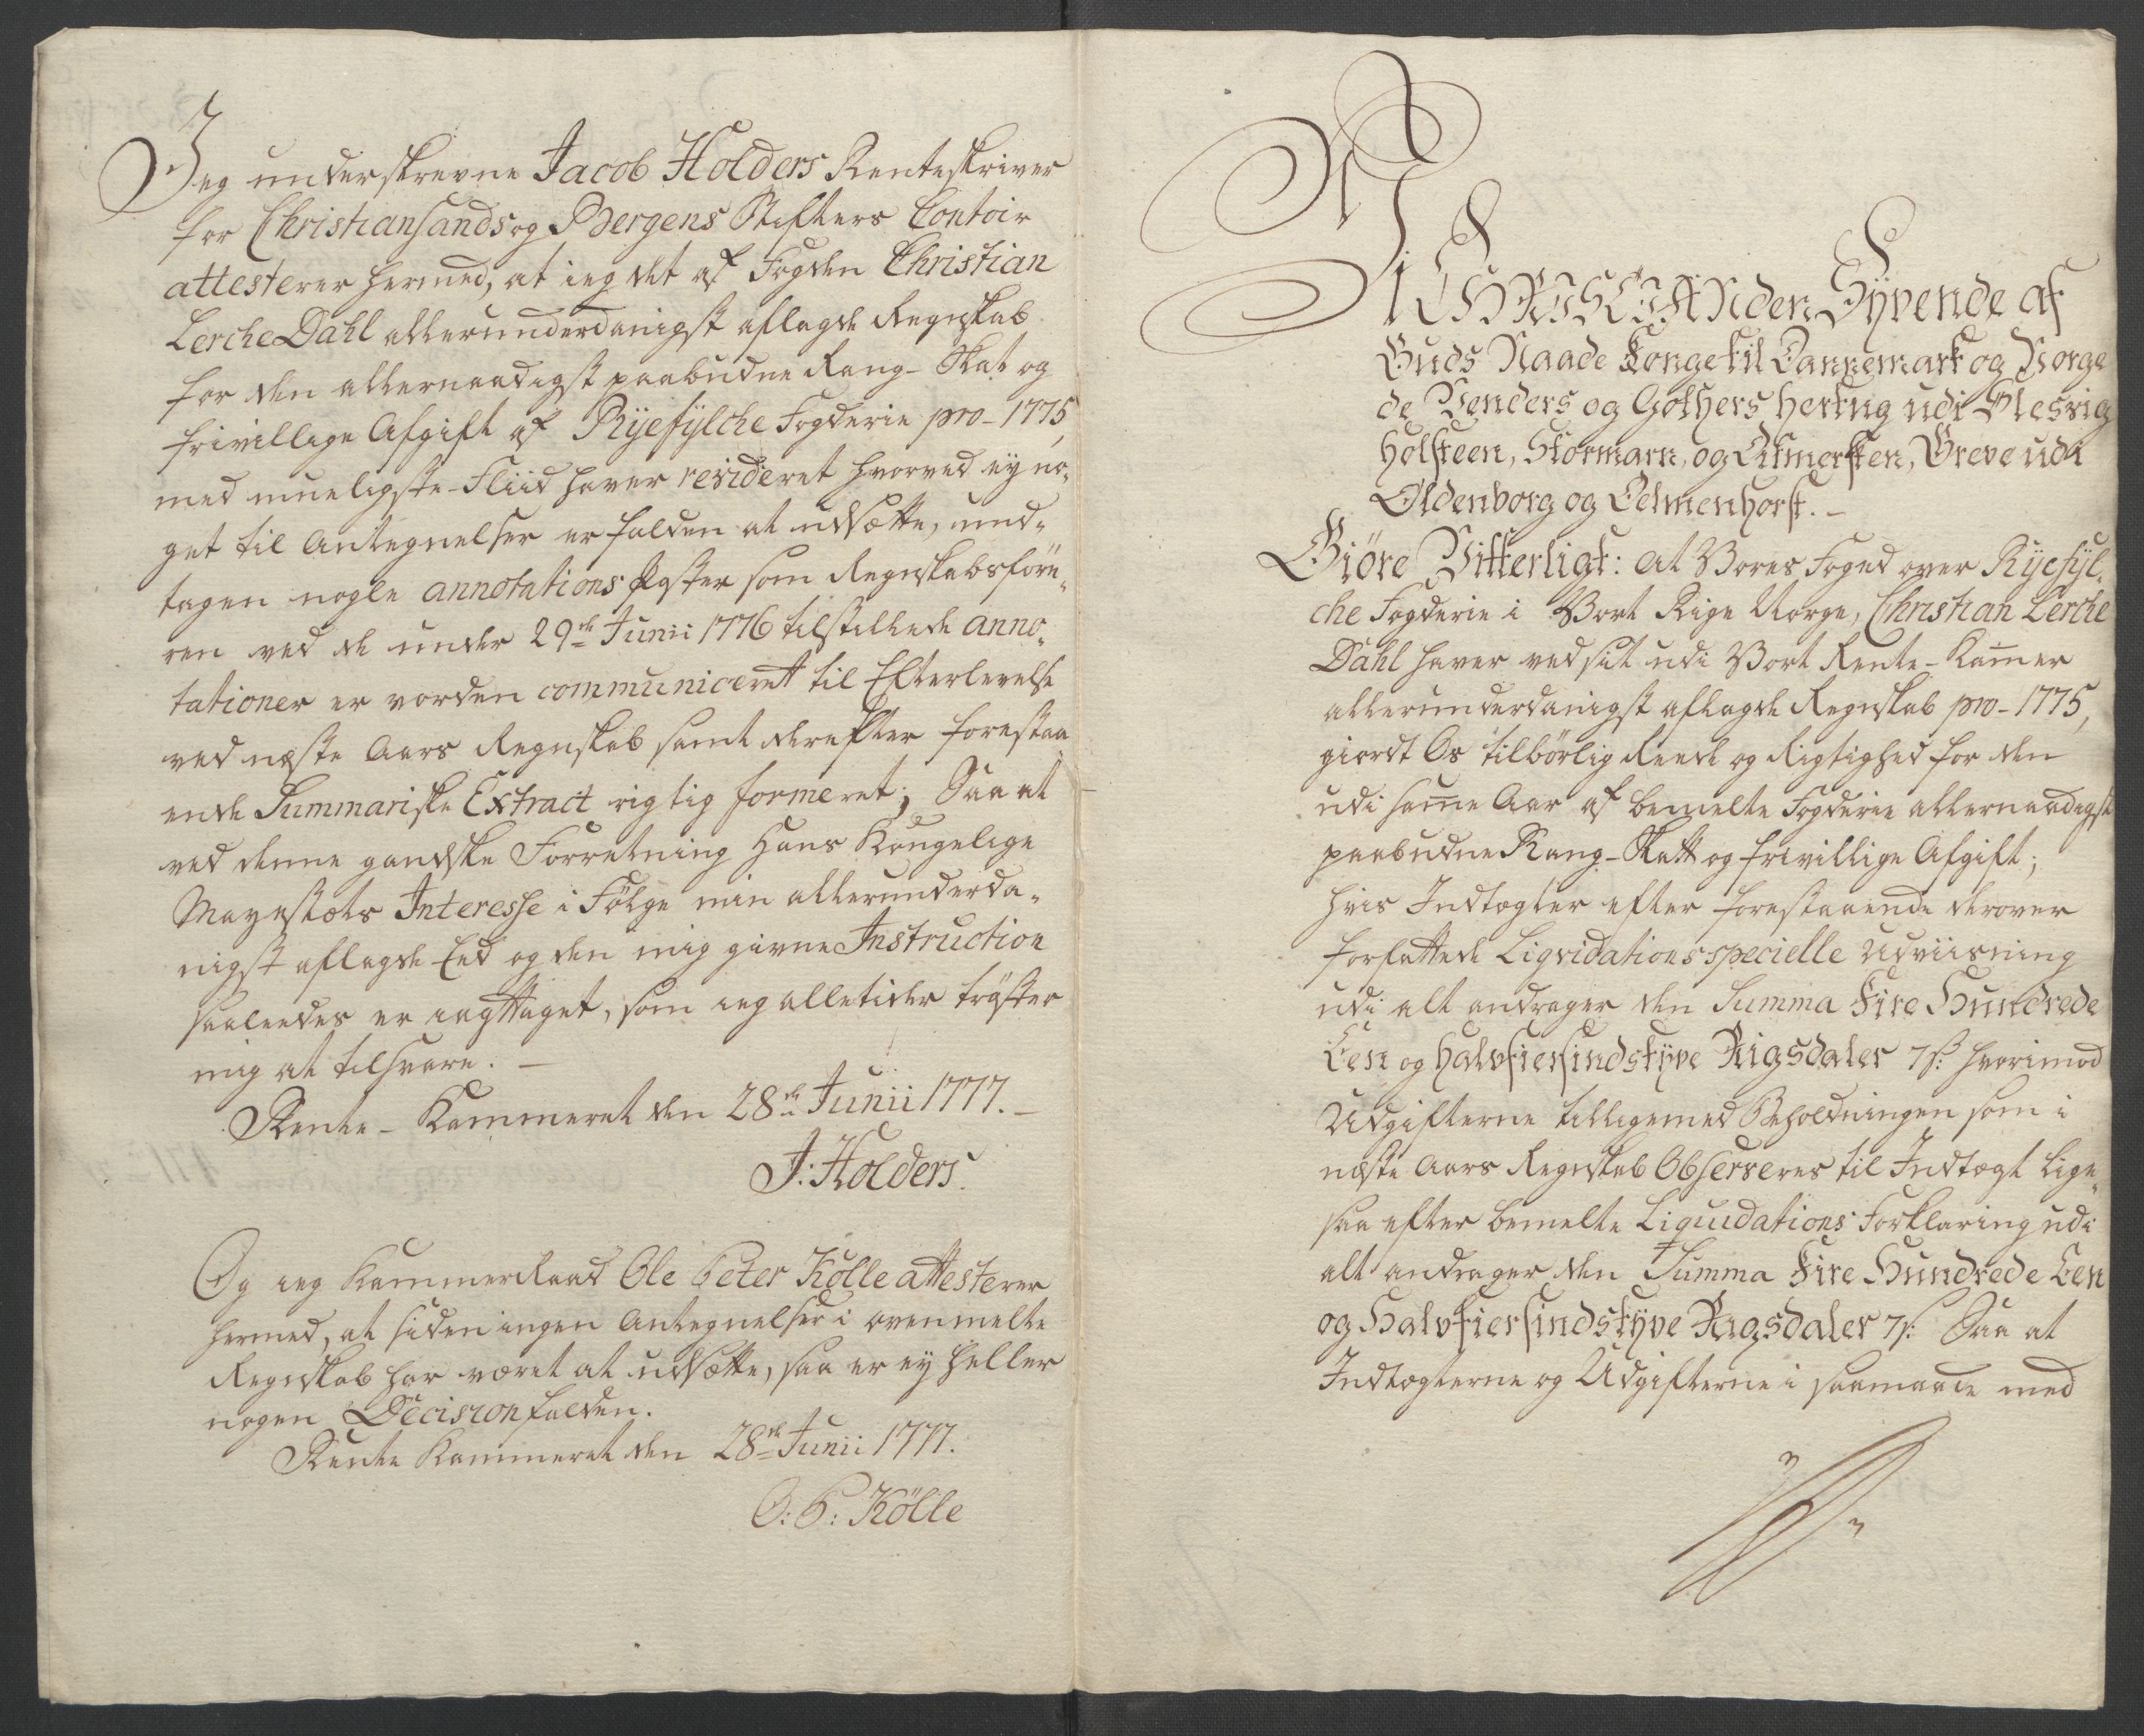 Jeg underskrevne Jacob Holders Renteskriver
for Christiansands og Bergens Stifters Contoir
attesterer hermed, at ieg det af Fogden Christian
Lerche Dahl allerunderdanigst aflagde Regnskab
for den allernaadigst paabudne Rang-Skat og
frivillige Afgift af Ryefylche Fogderie pro-1775,
med mueligste Fliid haver revideret hvorved ey no-
get til Antegnelser er falden at udsætte, und-
tagen nogle annotations Poster som Regnskabsføre-
ren ved de under 29de Junii 1776 tilstillede anno-
tationer er vorden communiceret til Efterlevelse
ved næste Aars Regnskab samt derefter forestaa
ende Summariske Extract rigtig formeret; Saa at
ved denne gandske Forretning Hans Kongelige
Mayestæts Interesse i Følge min allerunderda-
nigst aflagde Eed og den mig givne Instruction
saaledes er iagttaget, som ieg alletider trøster
mig at tilsvare. —
Rente-Kammeret den 28de Junii 1777. —
J: Holders.
Og ieg Kammer Raad Ole Peter Kølle attesterer
hermed, at siden ingen Antegnelser i ovenmelte
Regnskab har været at udsætte, saa er ey heller
nogen Decision falden.
Rente Kammeret den 28de Junii 1777.
O: P: Kölle
Vi CHRISTIAN den Syvende af
Guds Naade Konge til Dannemark og Norge
de Venders og Gothers Hertug udi Slesvig
Holsteen, Stormarn, og Ditmersken, Greve udi
Oldenborg og Delmenhorst. —
Giöre Vitterligt: At Vores Foged over Ryefyl-
che Fogderie i Vort Rige Norge, Christian Lerche
Dahl haver ved sit udi Vort Rente-Kammer
allerunderdanigst aflagde Regnskab pro-1775,
giordt Os tilbörlig Reede og Rigtighed for den
udi samme Aar af bemelte Fogderie allernaadigst
paabudne Rang-Skatt og frivillige Afgift;
hvis Indtægter efter forestaaende derover
forfattede Liqvidations specielle Udviisning
udi alt andrager den Summa Fire Hundrede
Een og Halvfiersindstyve Rigsdaler 7 s: hvorimod
Udgifterne tilligemed Beholdningen som i
næste Aars Regnskab Observeres til Indtægt lige-
saa efter bemelte Liquidations Forklaring udi
alt andrager den Summa Fire Hundrede Een
og Halvfiersindstyve Rigsdaler 7 s: Saa at
Indtægterne og Udgifterne i saamaade med